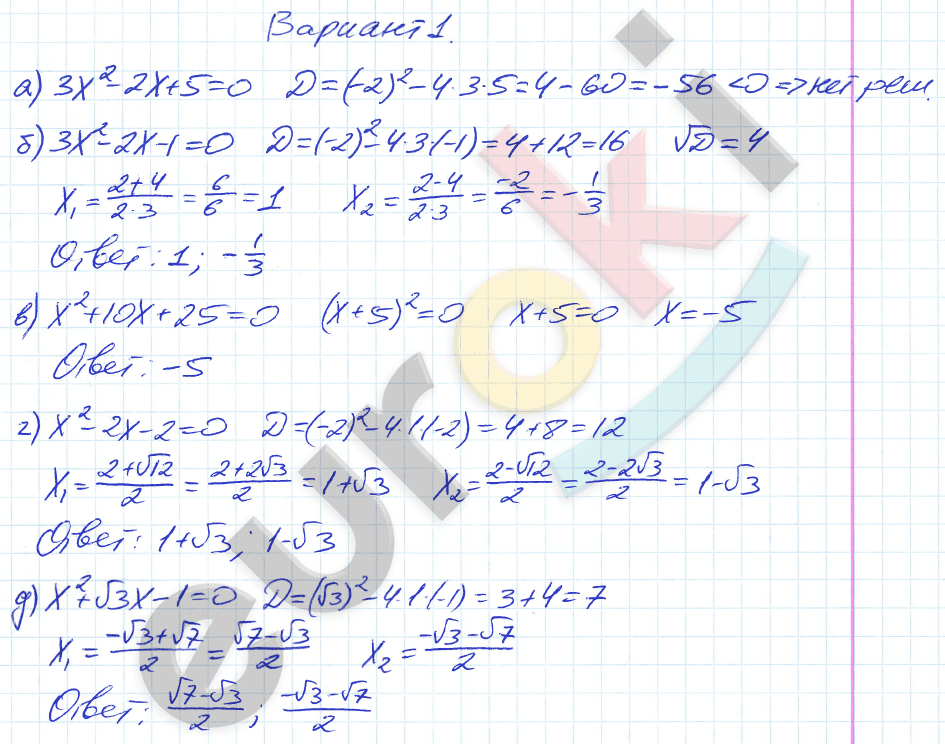 Вариант 1.
а) 3x² - 2x + 5 = 0 D = (-2)² - 4·3·5 = 4 - 60 = -56 < 0 => нет реш.
б) 3x² - 2x - 1 = 0 D = (-2)² - 4·3·(-1) = 4 + 12 = 16 √D = 4
x₁ = (2+4)/(2·3) = 6/6 = 1 x₂ = (2-4)/(2·3) = -2/6 = -1/3
Ответ: 1; -1/3
в) x² + 10x + 25 = 0 (x+5)² = 0 x+5=0 x=-5
Ответ: -5
г) x² - 2x - 2 = 0 D = (-2)² - 4·1·(-2) = 4 + 8 = 12
x₁ = (2+√12)/2 = (2+2√3)/2 = 1+√3 x₂ = (2-√12)/2 = (2-2√3)/2 = 1-√3
Ответ: 1+√3; 1-√3
д) x² + √3x - 1 = 0 D = (√3)² - 4·1·(-1) = 3 + 4 = 7
x₁ = (-√3+√7)/2 = (√7-√3)/2 x₂ = (-√3-√7)/2
Ответ: (√7-√3)/2; (-√3-√7)/2
euroki